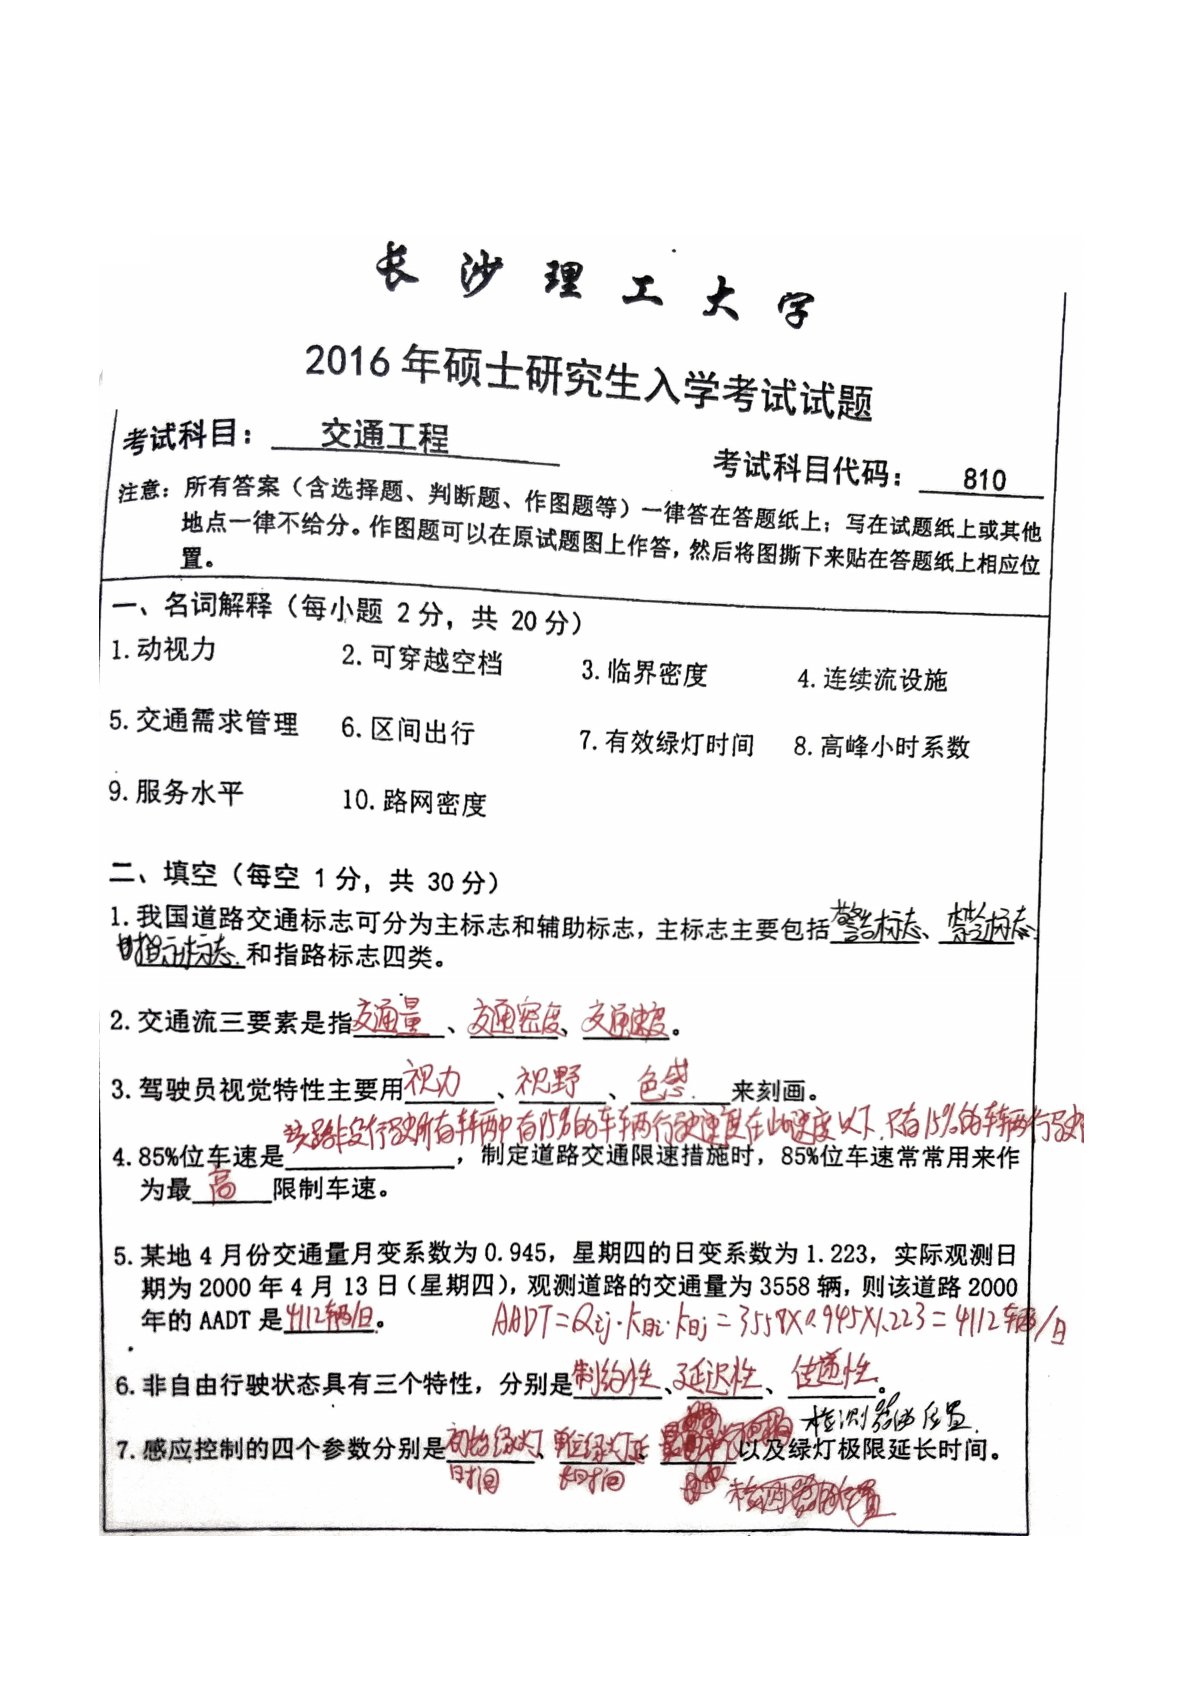 长沙理工大学
2016年硕士研究生入学考试试题
考试科目： 交通工程 考试科目代码： 810
注意：所有答案（含选择题、判断题、作图题等）一律答在答题纸上；写在试题纸上或其他
地点一律不给分。作图题可以在原试题图上作答，然后将图撕下来贴在答题纸上相应位
置。
一、名词解释（每小题 2 分，共 20 分）
1.动视力 2.可穿越空档 3.临界密度 4.连续流设施
5.交通需求管理 6.区间出行 7.有效绿灯时间 8.高峰小时系数
9.服务水平 10.路网密度
二、填空（每空 1 分，共 30 分）
1.我国道路交通标志可分为主标志和辅助标志，主标志主要包括警告标志、禁令标志、
指示标志和指路标志四类。
2.交通流三要素是指交通量、交通密度、交通速度。
3.驾驶员视觉特性主要用视力、视野、色感来刻画。
该路段行驶所有车辆中有15%的车车辆行驶速度在此速度以下.只有15%的车辆行驶
4.85%位车速是 ，制定道路交通限速措施时，85%位车速常常用来作
为最高限制车速。
5.某地 4 月份交通量月变系数为 0.945，星期四的日变系数为 1.223，实际观测日
期为 2000 年 4 月 13 日（星期四），观测道路的交通量为 3558 辆，则该道路 2000
年的 AADT 是4112辆/日。 AADT=Qij·K月i·K日j=3558×0.945×1.223=4112辆/日
6.非自由行驶状态具有三个特性，分别是制约性、延迟性、传递性。
检测器的位置.
7.感应控制的四个参数分别是初始绿灯、单位绿灯延 以及绿灯极限延长时间。
时间 长时间 检测器的位置